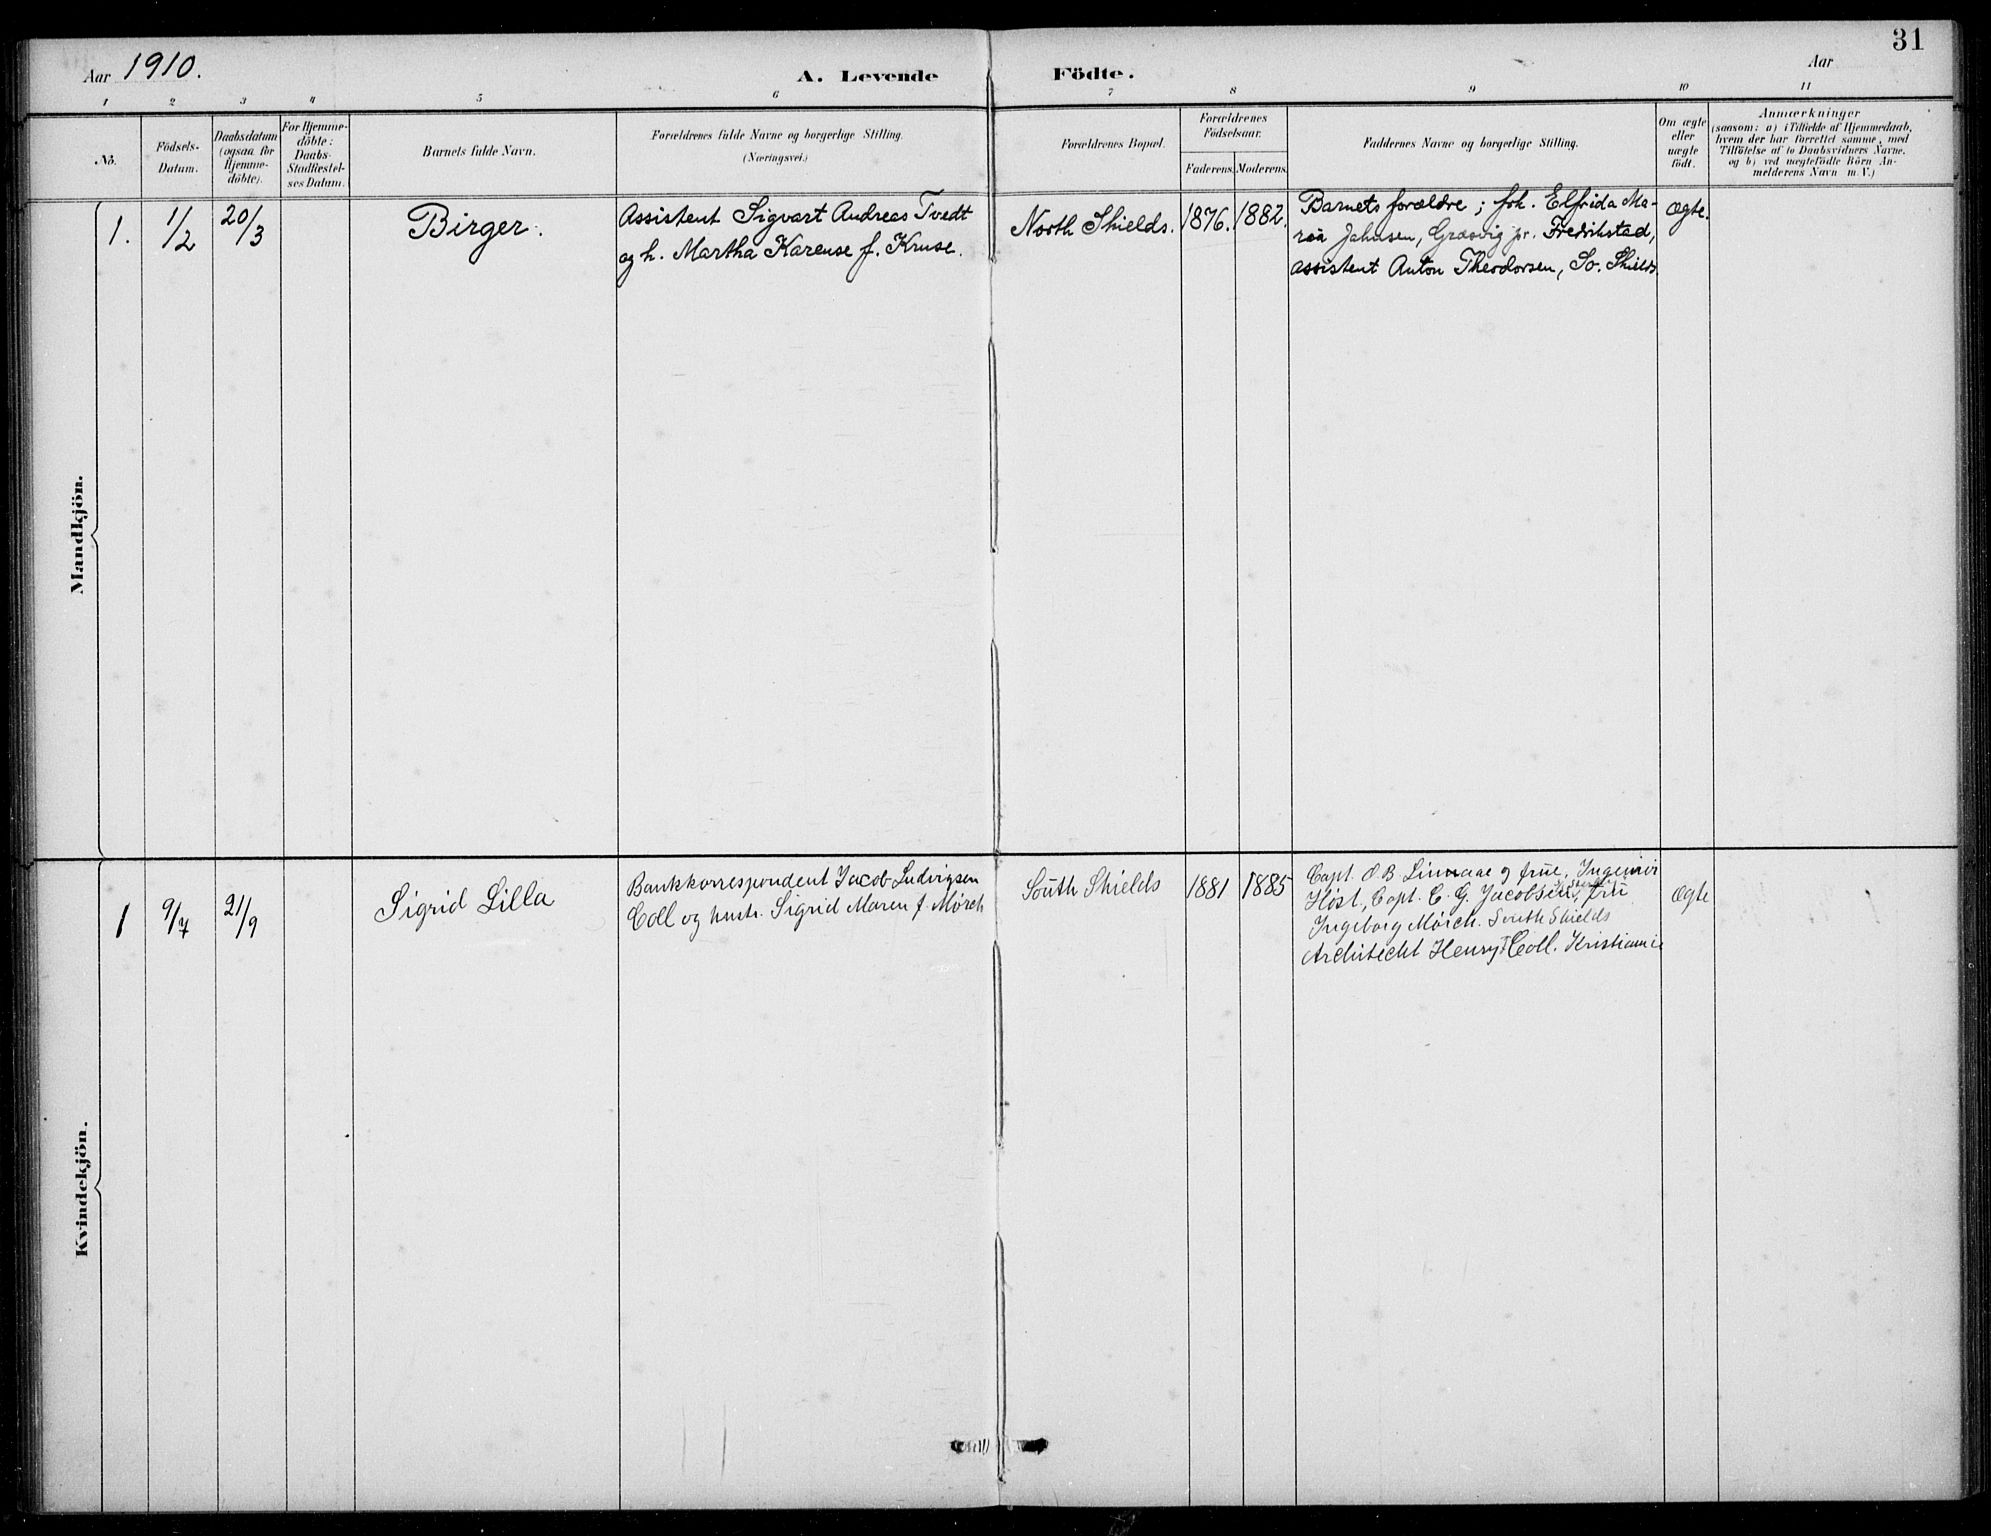 31
Aar 1910.
A. Levende Födte.
Aar
1 2 3 4 5 6 7 8 9 10 11
No.
Födsels-
Datum.
Daabsdatum
(ogsaa for
Hjemme-
döbte).
For Hjemme-
döbte:
Daabs-
Stadfæstel-
ses Datum.
Barnets fulde Navn.
Forældrenes fulde Navne og borgerlige Stilling.
(Næringsvei.)
Forældrenes Bopæl.
Forældrenes
Födselsaar.
Faderens. Moderens.
Faddernes Navne og borgerlige Stilling.
Om ægte
eller
uægte
födt.
Anmærkninger
(saasom: a) i Tilfælde af Hjemmedaab,
hvem der har forrettet samme, med
Tilföielse af to Daabsvidners Navne.
og b) ved uægtefödte Börn An-
melderens Navn m. V.)
Mandkjön.
1.
1/2
20/3
Birger.
Assistent Sigvart Andreas Tvedt
og h. Martha Karense f. Kruse.
North Shields.
1876.
1882.
Barnets forældre; frk. Elfrida Ma-
ria Jahnsen, Græsvig pr. Fredrikstad,
assistent Anton Theodorsen, So. Shields
Ægte.
Kvindekjön.
1
9/7
21/9
Sigrid Lilla
Bankkorrespondent Jacob Ludvigsen
Coll og hustr. Sigrid Maren f. Mørch
South Shields
1881
1885
Capt. O B Linaae og frue, Ingeniør
Høst, Capt. C. G. Jacobsen, fru
Ingeborg Mørch. South Shields
Architecht Henry Coll. Kristiania
Ægte